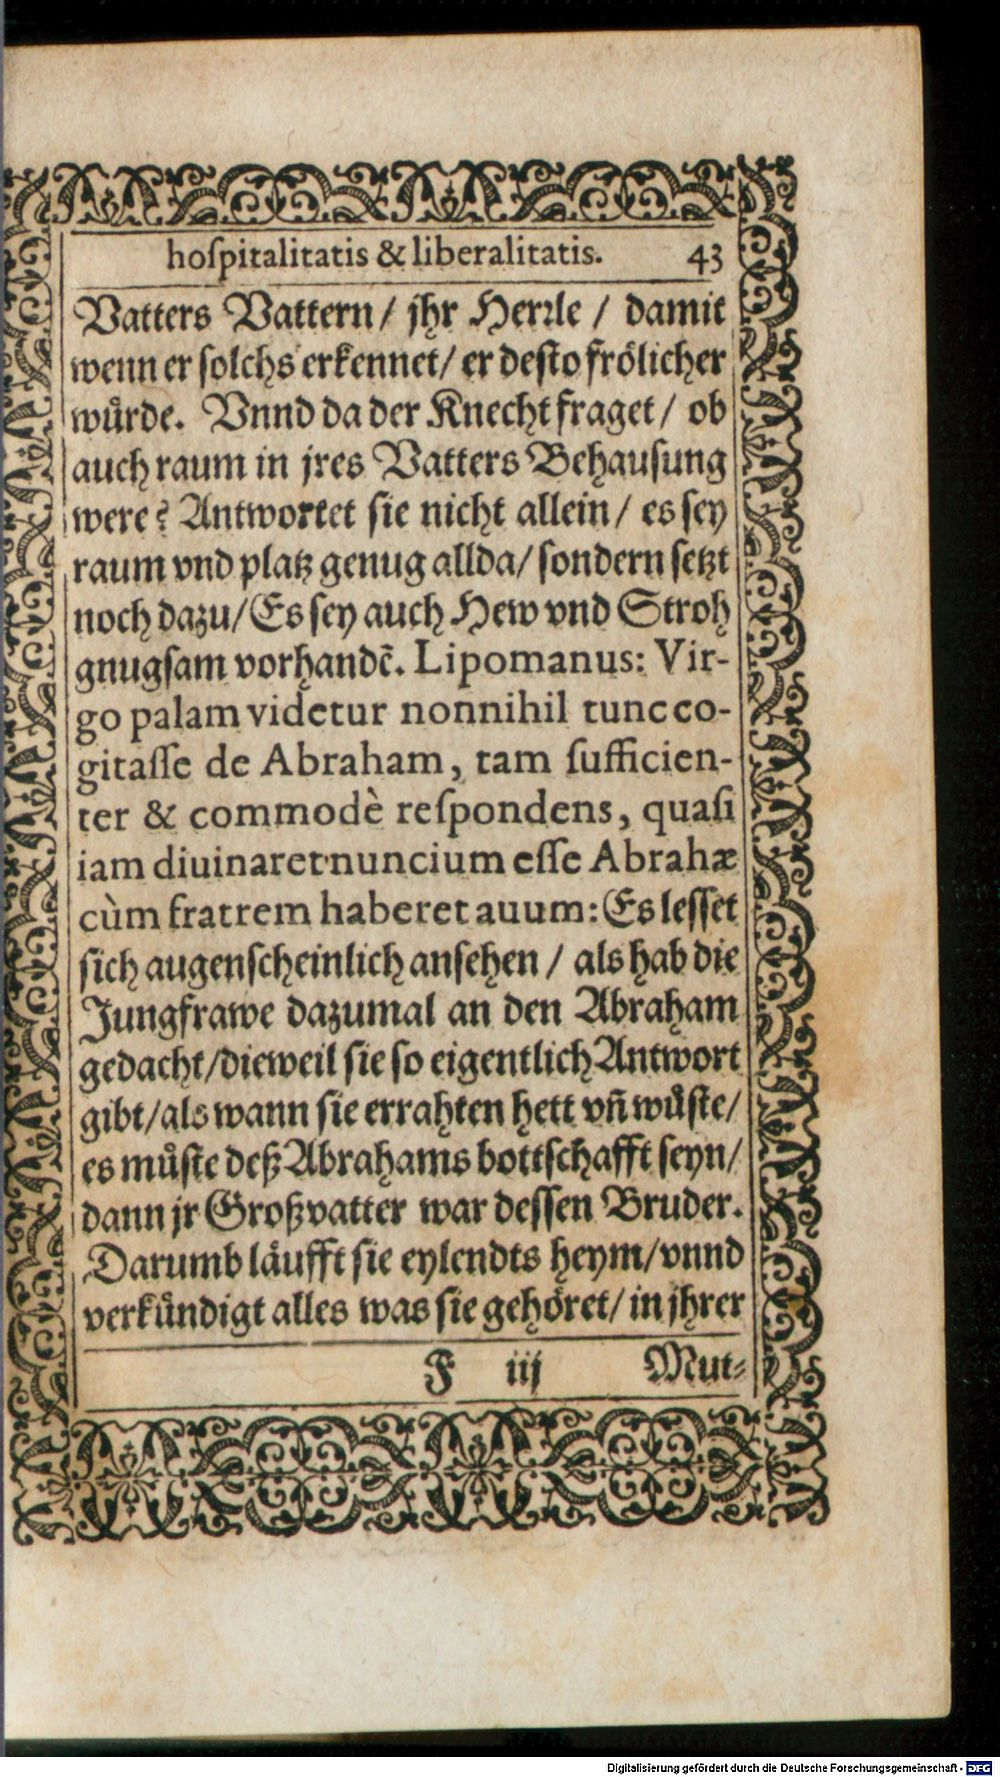 hoſpitalitatis & liberalitatis. 43
Vatters Vattern / jhr Herꝛle / damit
wenn er ſolchs erkennet / er deſto frölicher
wuͤrde. Vnnd da der Knecht fraget / ob
auch raum in jres Vatters Behauſung
were? Antwortet ſie nicht allein / es ſey
raum vnd platz genug allda / ſondern ſetzt
noch dazu / Es ſey auch Hew vnd Stroh
gnugſam vorhandē. Lipomanus: Vir-
go palam videtur nonnihil tunc co-
gitaſſe de Abraham, tam ſufficien-
ter & commodè reſpondens, quaſi
iam diuinaret nuncium eſſe Abrahæ
cùm fratrem haberet auum: Es leſſet
ſich augenſcheinlich anſehen / als hab die
Jungfrawe dazumal an den Abraham
gedacht / dieweil ſie ſo eigentlich Antwort
gibt / als wann ſie errahten hett vn̄ wuͤſte /
es muͤſte deß Abrahams bottſchafft ſeyn /
dann jr Großvatter war deſſen Bruder.
Darumb laͤufft ſie eylendts heym / vnnd
verkuͤndigt alles was ſie gehoͤret / in jhrer
F iij Mut⸗
Digitalisierung gefördert durch die Deutsche Forschungsgemeinschaft - DFG